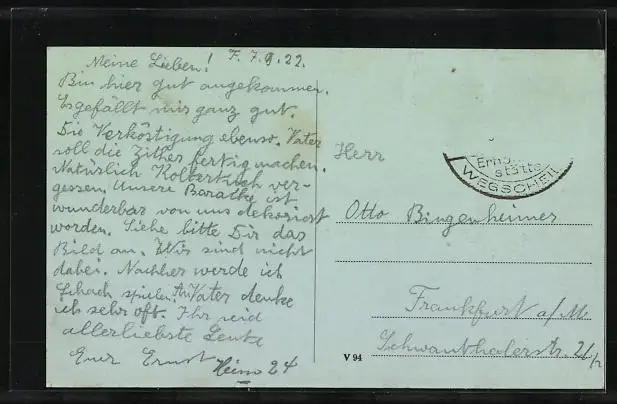 Meine Lieben! F. 7.9.22.
Bin hier gut angekommen.
Es gefällt mir ganz gut.
Die Verköstigung ebenso. Vater
soll die Zither fertig machen.
Natürlich Kolbertuch ver-
gessen. Unsere Baracke ist
wunderbar von uns dekoriert
worden. Siehe bitte Dir das
Bild an. Wir sind nicht
dabei. Nachher werde ich
Schach spielen. An Vater denke
ich sehr oft. Ihr seid
allerliebste Leute
Euer Ernst
Heino 24
Herr
Otto Bingenheimer
Frankfurt a/M.
Schwanthalerstr.
stätte
WEGSCHEIDE
V 94